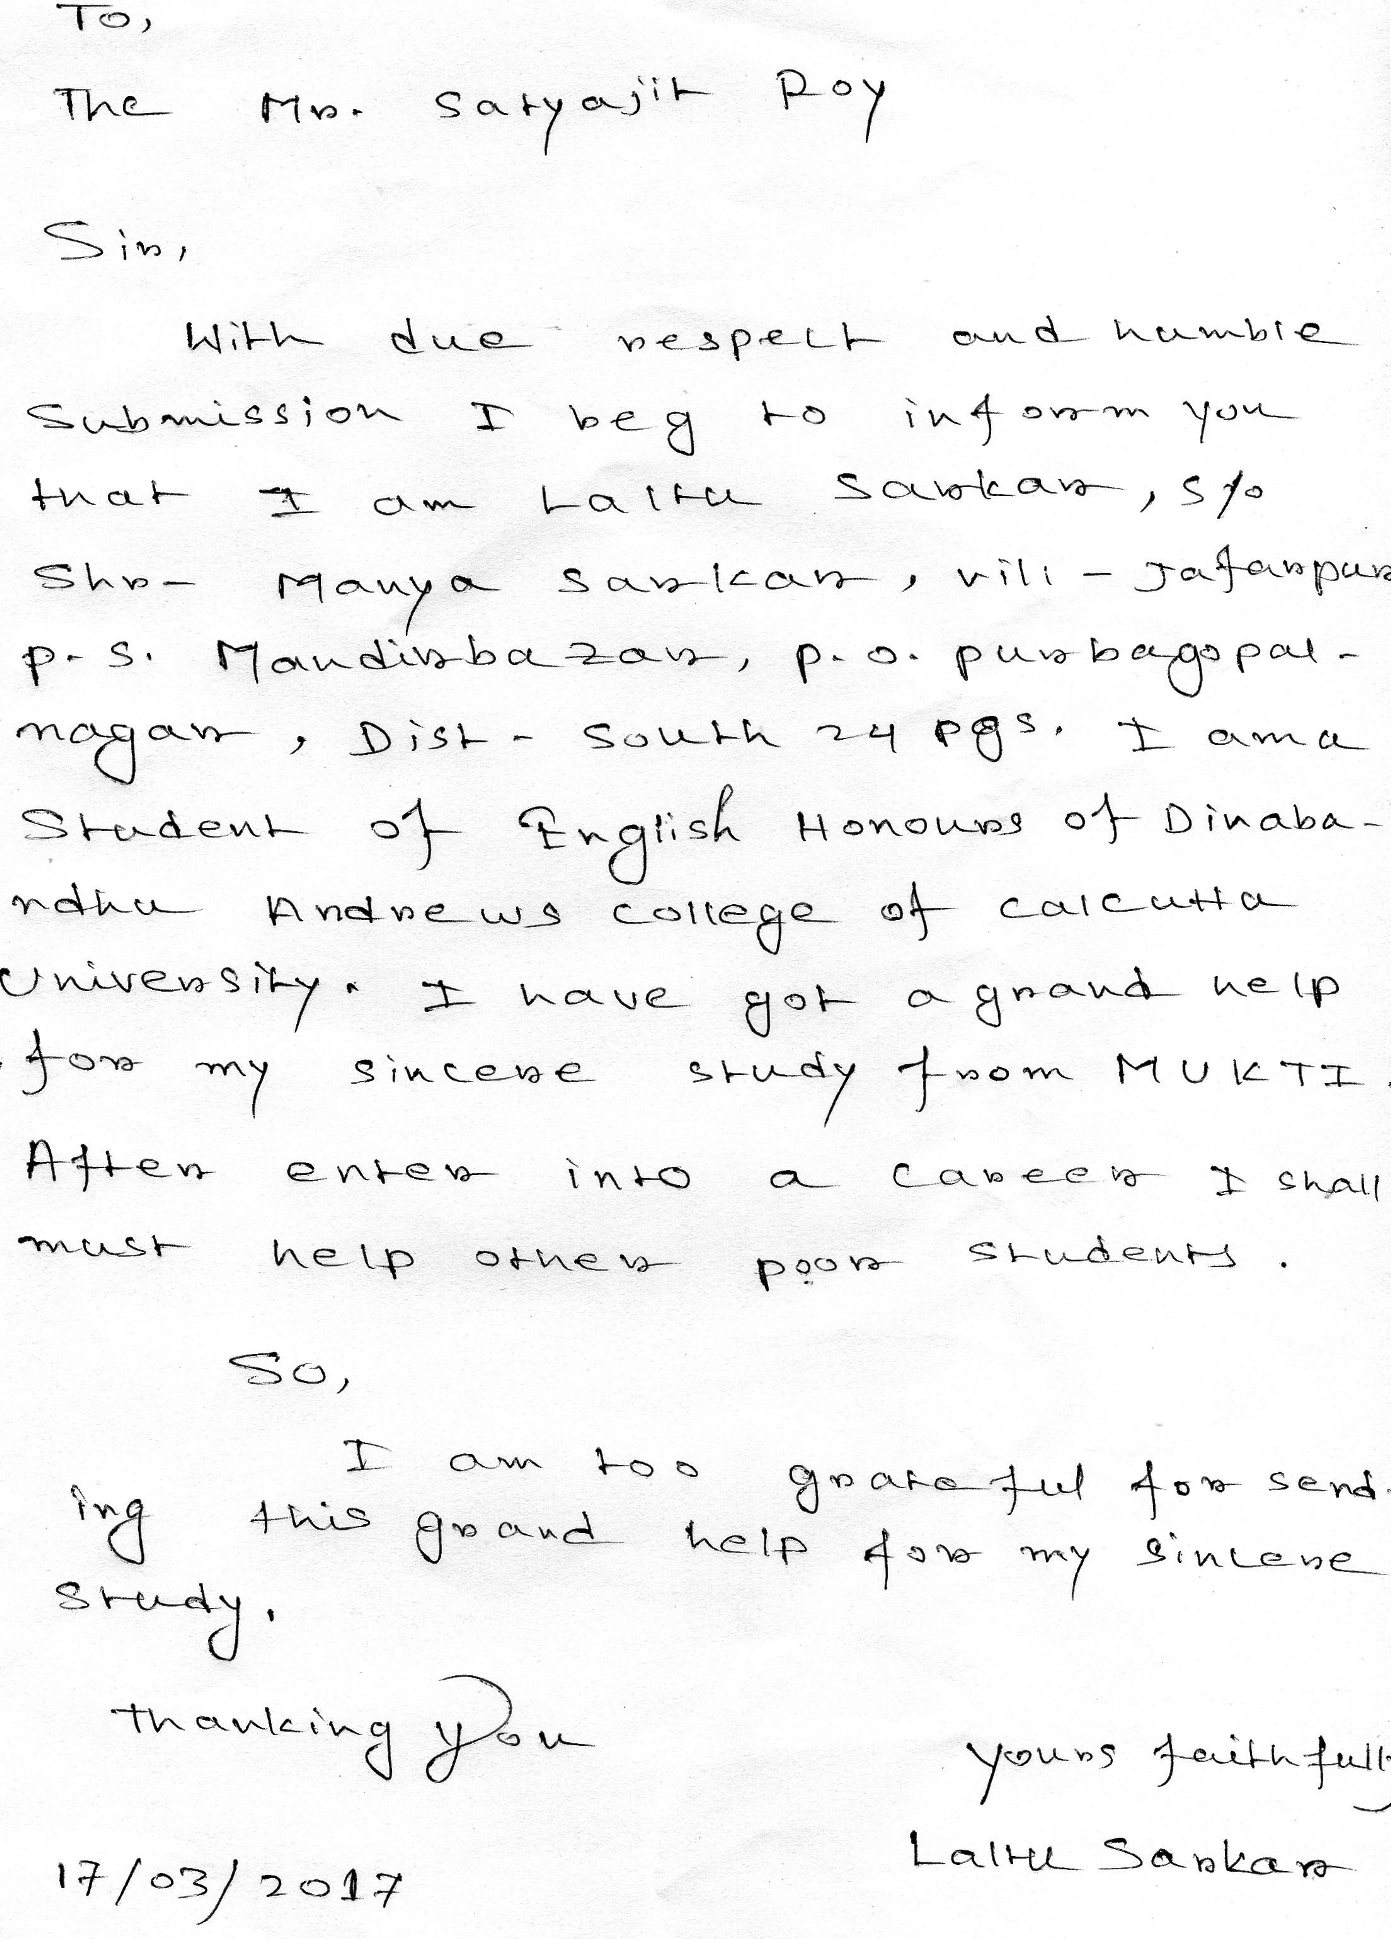 To,
The Mr. Satyajit Roy
Sir,
With due respect and humble
Submission I beg to inform you
that I am Laltu Sarkar, S/o
Shr- Manya Sarkar, vill - Jafarpur
p.s. Mandirbazar, p.o. purbagopal-
nagar, Dist - South 24 pgs. I am a
Student of English Honours of Dinaba-
ndhu Andrews college of calcutta
University. I have got a grand help
for my sincere study from MUKTI.
After enter into a career I shall
must help other poor students.
So,
I am too grateful for send-
ing this grand help for my sincere
study.
Thanking you
yours faithfully
Laltu Sarkar
17/03/2017